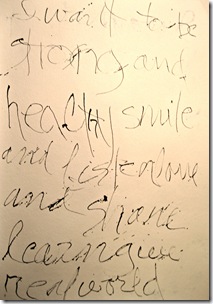 I want to be
strong and
healthy smile
and listen love
and share
learn give
real world